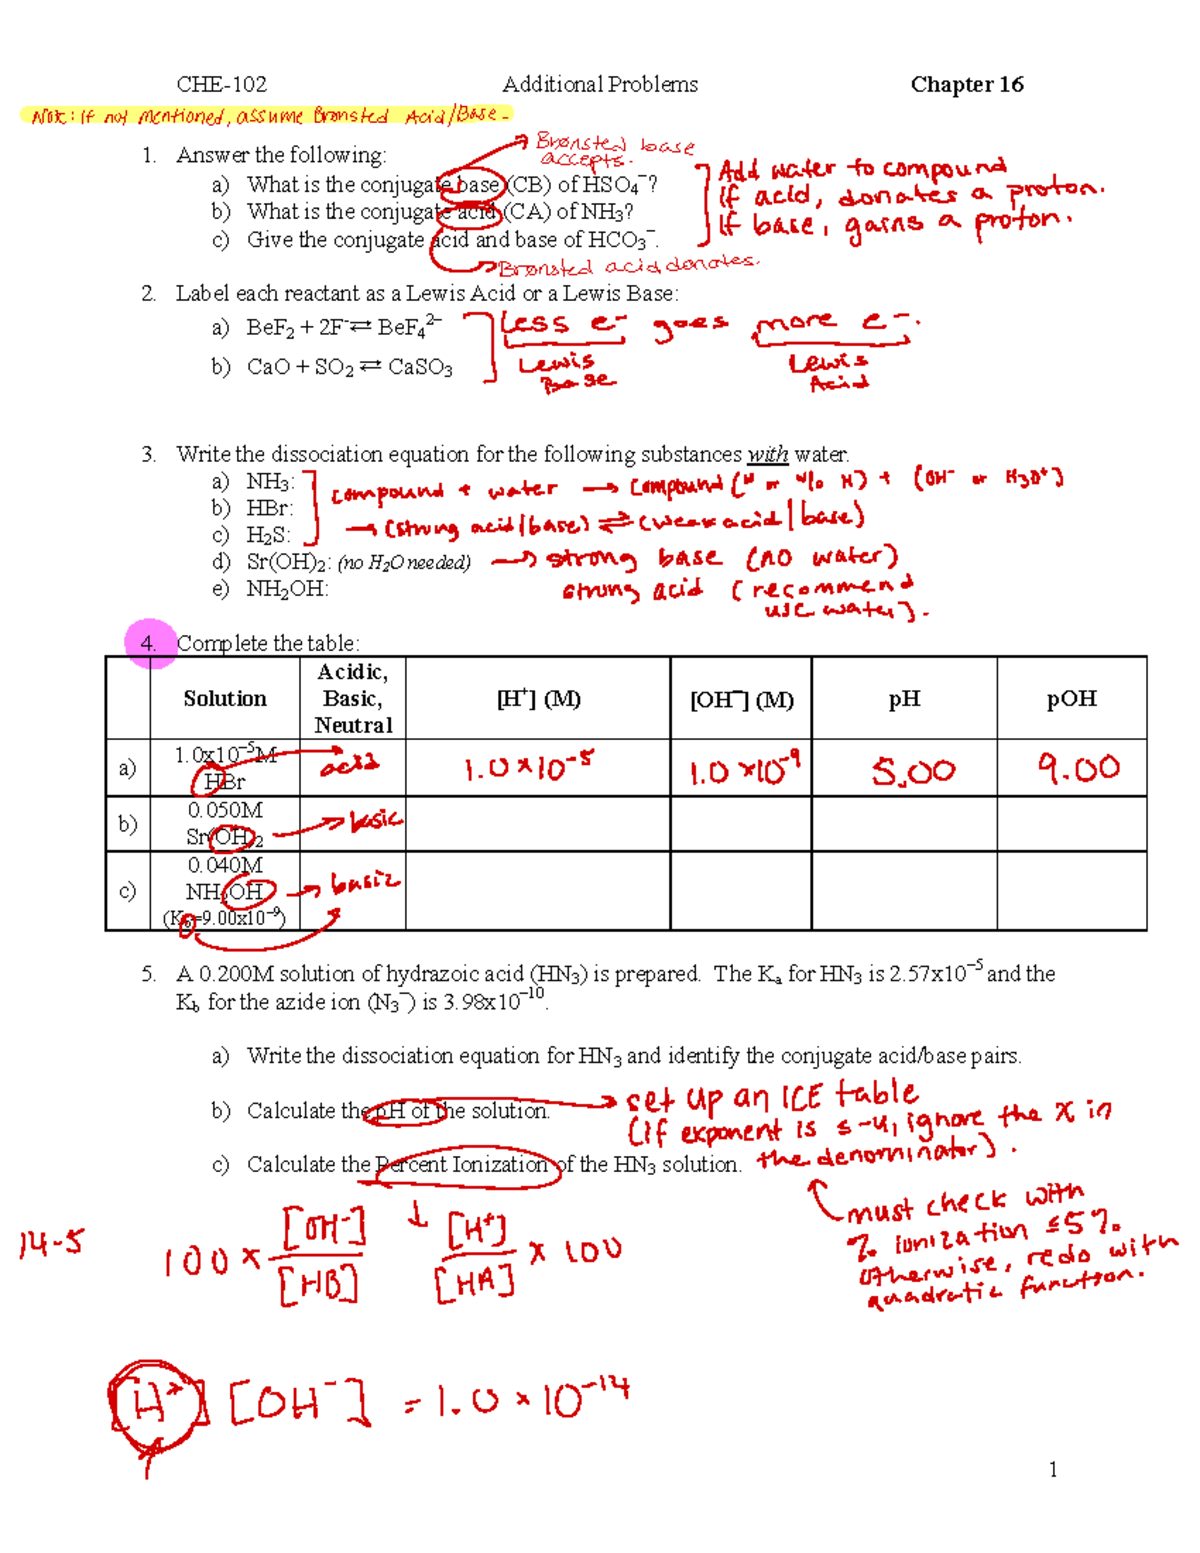 CHE-102 Additional Problems Chapter 16
Note: If not mentioned, assume Brønsted Acid/Base.
1. Answer the following:
Brønsted base
accepts.
a) What is the conjugate base (CB) of HSO₄⁻?
b) What is the conjugate acid (CA) of NH₃?
c) Give the conjugate acid and base of HCO₃⁻.
Add water to compound
If acid, donates a proton.
If base, gains a proton.
Brønsted acid donates.
2. Label each reactant as a Lewis Acid or a Lewis Base:
a) BeF₂ + 2F⁻ ⇄ BeF₄²⁻
b) CaO + SO₂ ⇄ CaSO₃
Less e⁻ goes more e⁻.
Lewis Base
Lewis Acid
3. Write the dissociation equation for the following substances with water.
a) NH₃:
b) HBr:
c) H₂S:
d) Sr(OH)₂: (no H₂O needed)
e) NH₂OH:
compound + water → compound (H or w/o H) + (OH⁻ or H₃O⁺)
→ (strong acid/base) ⇌ (weak acid/base)
→ strong base (no water)
strong acid (recommend
use water).
4. Complete the table:
Solution Acidic, Basic, Neutral [H⁺] (M) [OH⁻] (M) pH pOH
a) 1.0x10⁻⁵M HBr acid 1.0×10⁻⁵ 1.0×10⁻⁹ 5.00 9.00
b) 0.050M Sr(OH)₂ → basic
c) 0.040M NH₂OH (K_b=9.00x10⁻⁹) → basic
5. A 0.200M solution of hydrazoic acid (HN₃) is prepared. The Kₐ for HN₃ is 2.57x10⁻⁵ and the
K_b for the azide ion (N₃⁻) is 3.98x10⁻¹⁰.
a) Write the dissociation equation for HN₃ and identify the conjugate acid/base pairs.
b) Calculate the pH of the solution.
set up an ICE table
(If exponent is s-4, ignore the x in
the denominator).
c) Calculate the Percent Ionization of the HN₃ solution.
must check with
% Ionization ≤5%.
Otherwise, redo with
quadratic function.
14-5
100 × [OH⁻]/[HB] ↓ [H⁺]/[HA] × 100
[H⁺][OH⁻] = 1.0×10⁻¹⁴
1